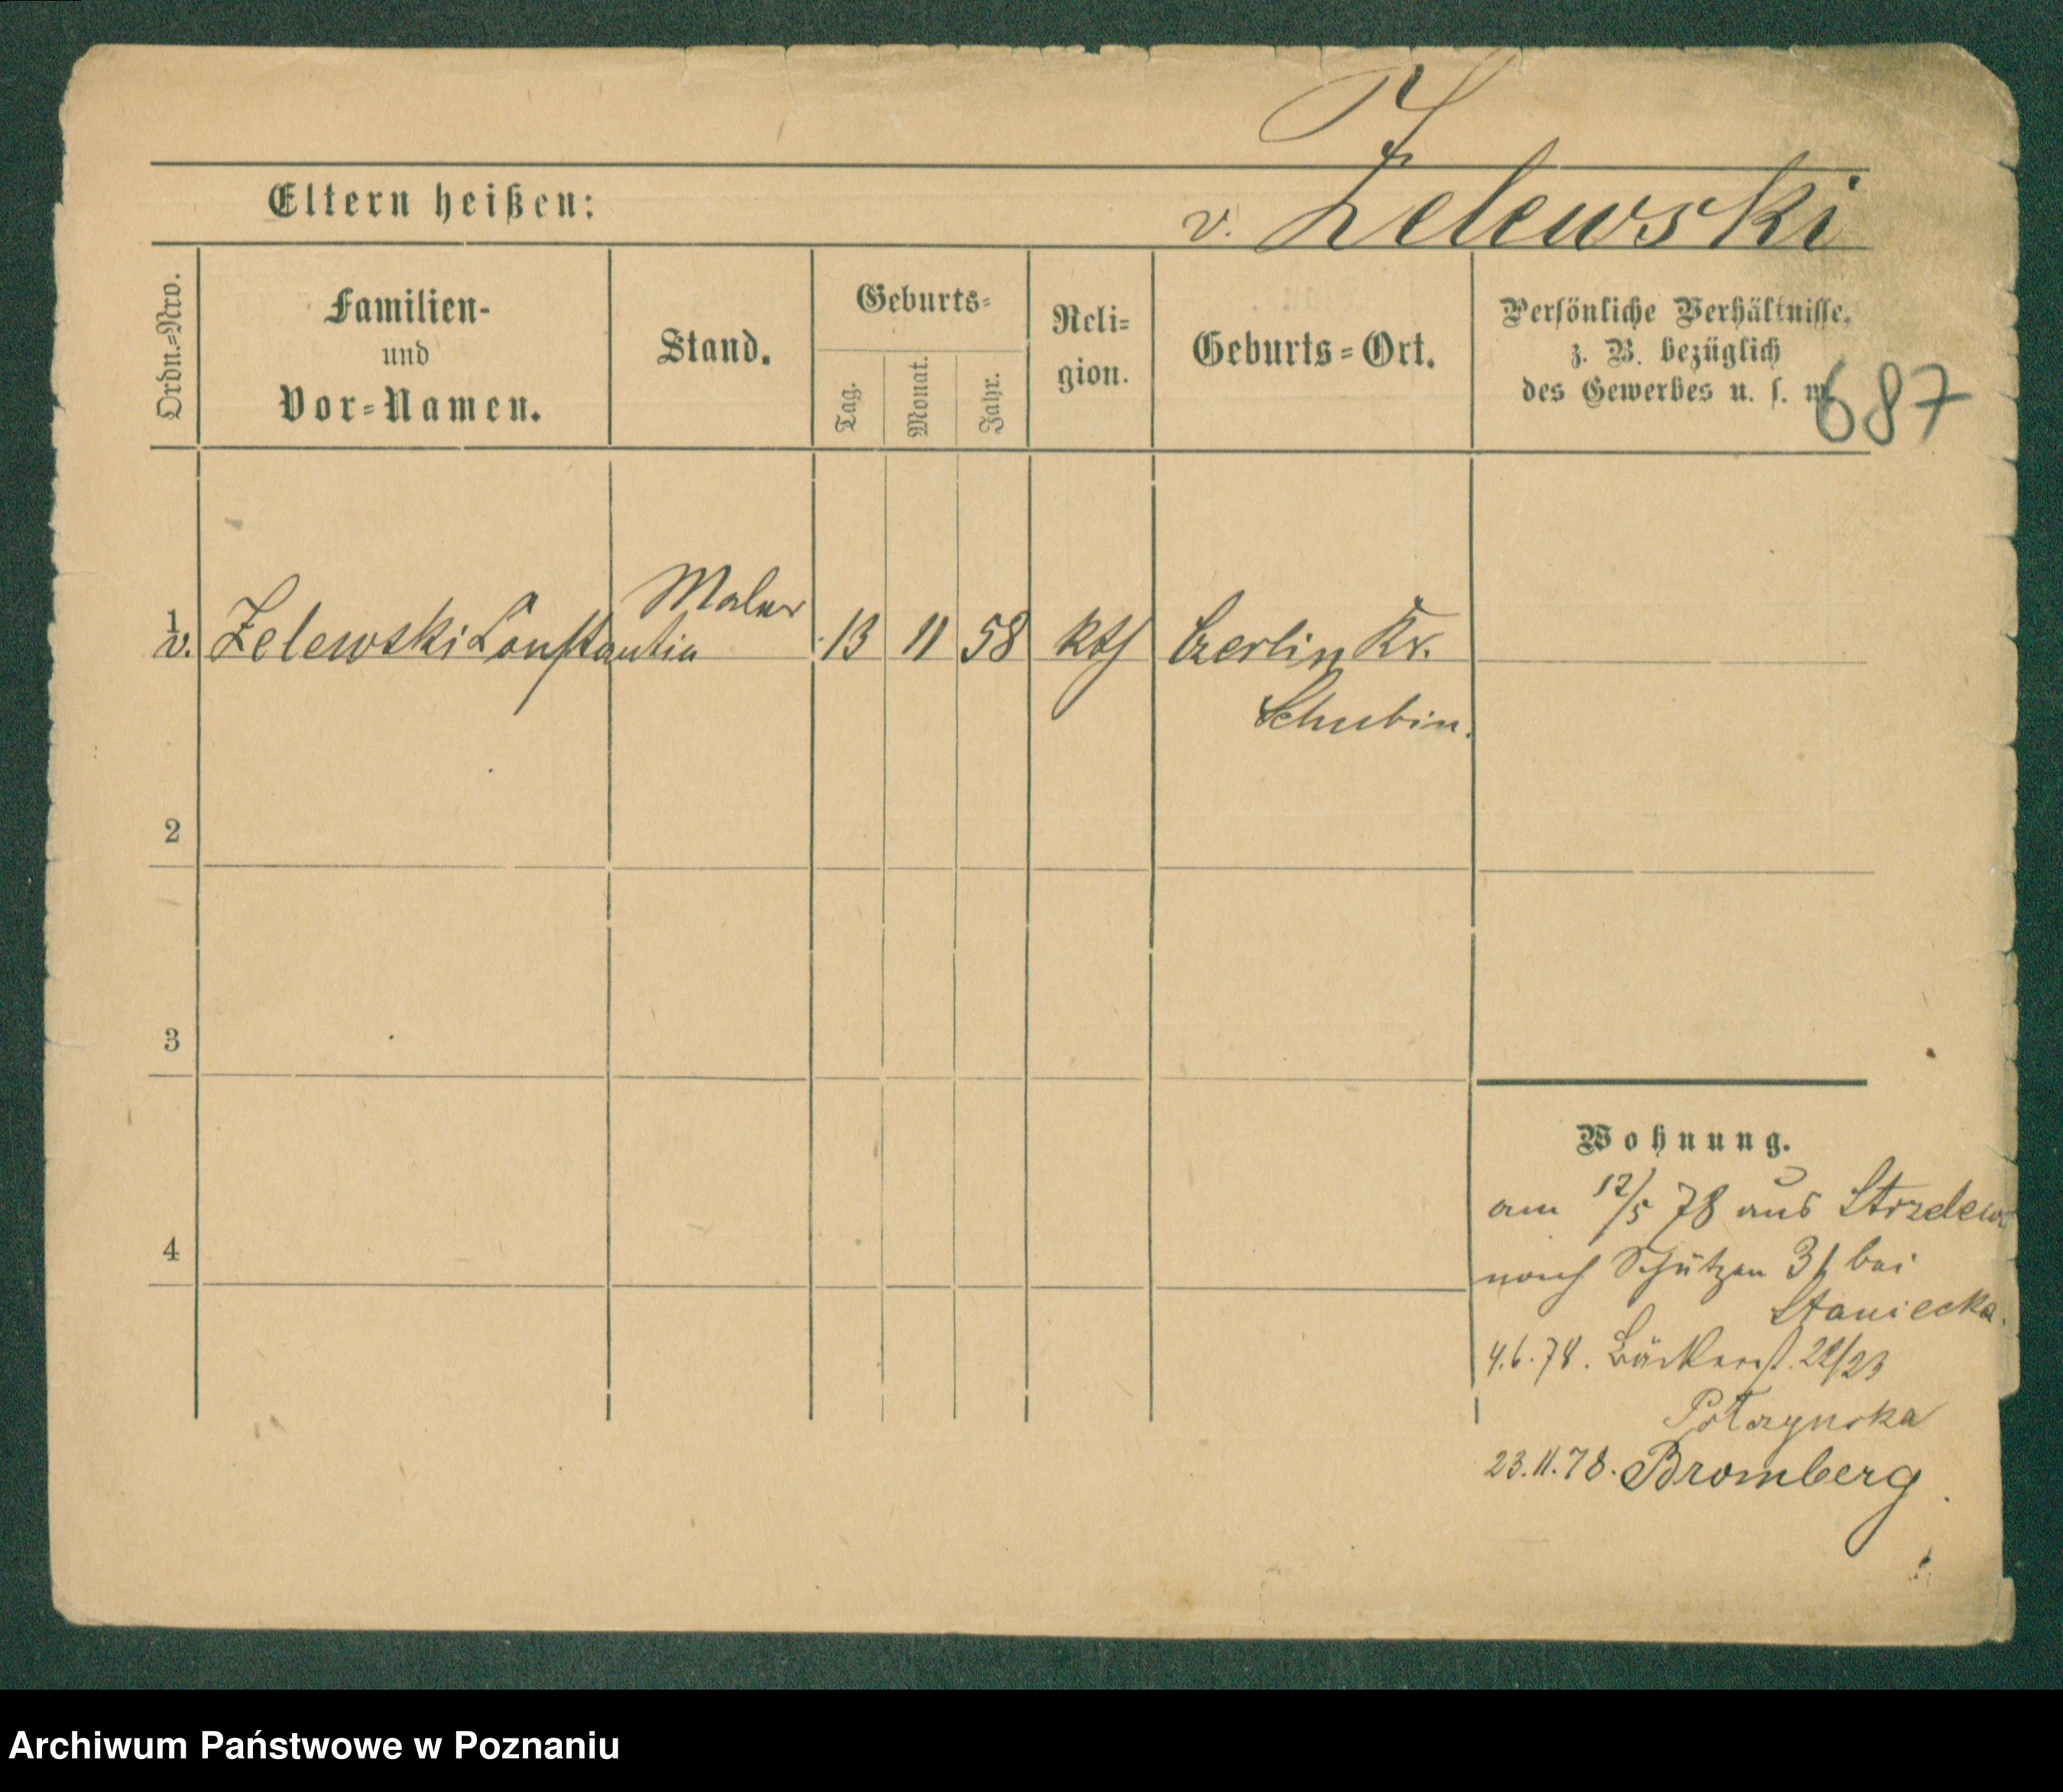 Z
Eltern heißen:
v. Zelewski
Ordn.=Nro.
Familien-
und
Vor=Namen.
Stand.
Geburts=
Tag.
Monat.
Jahr.
Reli=
gion.
Geburts=Ort.
Persönliche Verhältnisse,
z. B. bezüglich
des Gewerbes u. s. w.
687
1
v. Zelewski Constantin Maler 13 11 58 kth Czerlin Kr.
Schubin.
2
3
4
Wohnung.
am 12/5 78 aus
nach Schützen 31 bei
Staniecka.
4.6.78. Bäckerst. 22/23
23.11.78. Bromberg.
Archiwum Państwowe w Poznaniu